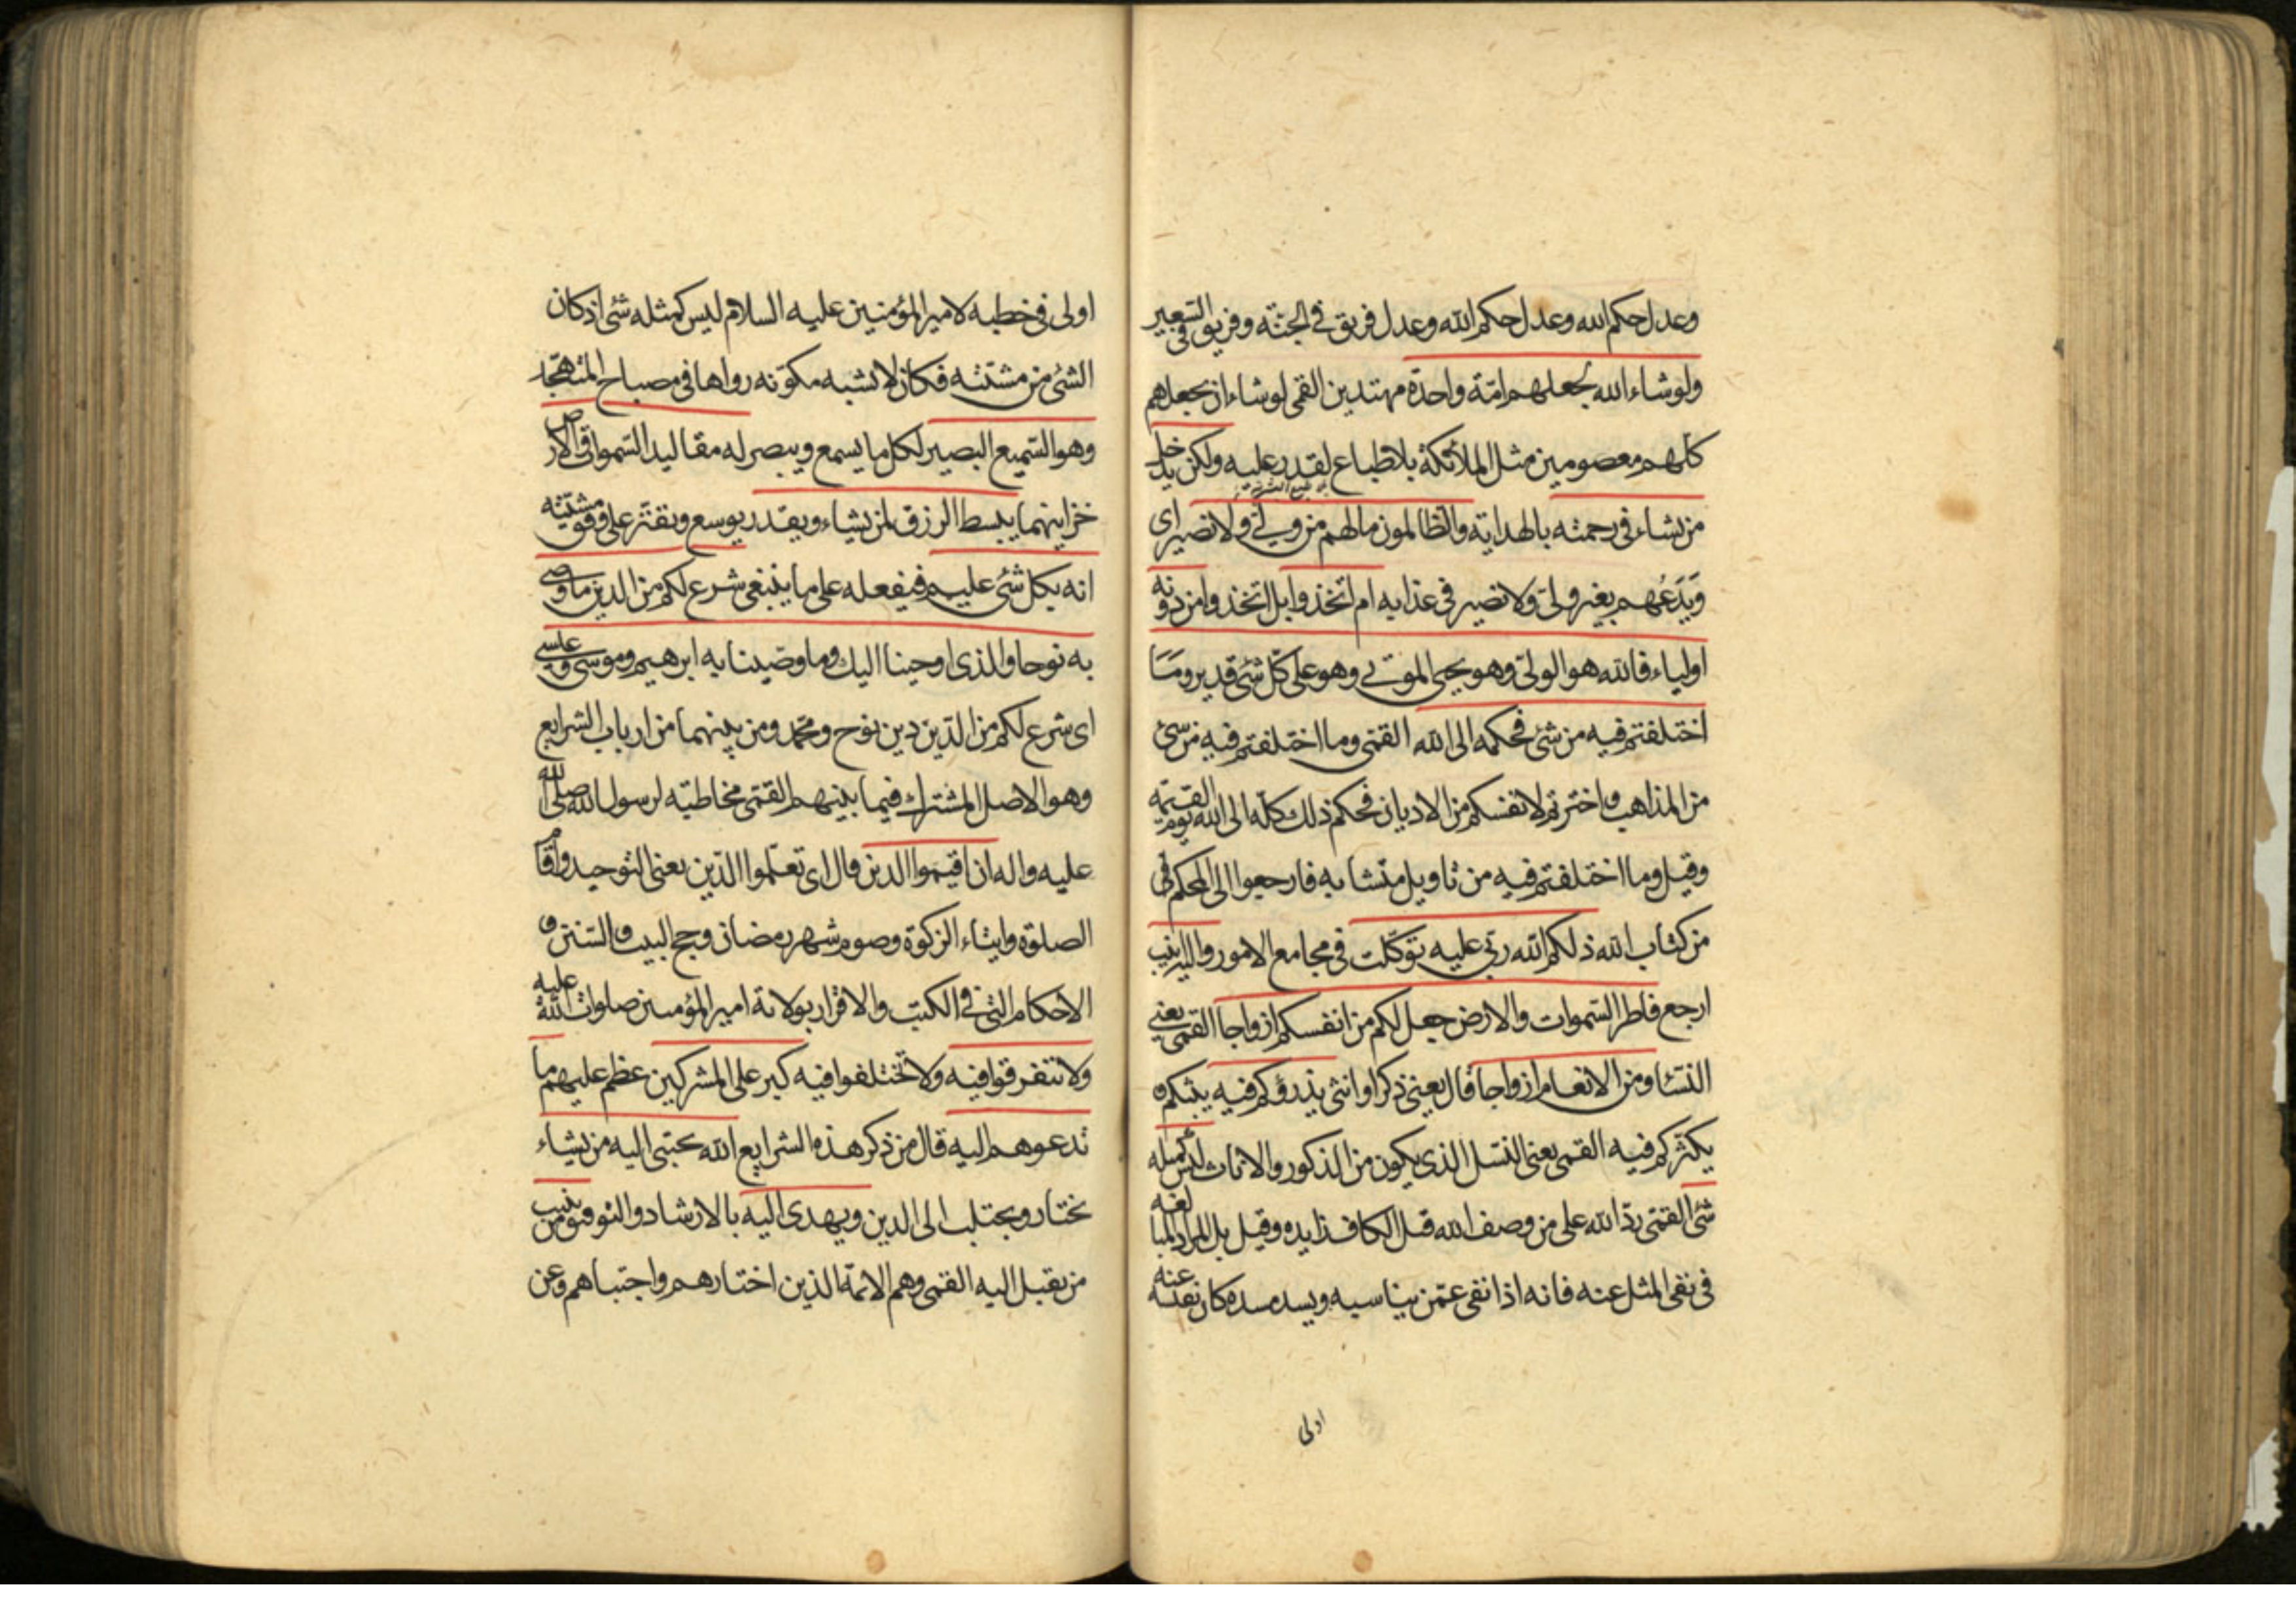 وعدل حكم الله وعدل حكم الله وعدل فريق في الجنة وفريق في السعير
ولو شاء الله لجعلهم امّة واحدة مهتدين القمى لو شاء ان يجعلهم
كلهم معصومين مثل الملائكة بلا طباع لقدر عليه ولكن يدخل
من يشاء في رحمته بالهداية والظالمون مالهم من وليّ ولا نصير اى
وَيَدَعُهم بغير ولىّ ولا نصير في عذابه ام اتخذوا بل اتخذوا من دونه
اولياء فالله هو الولىّ وهو يحيى الموتى وهو على كلّ شئ قدير ومَا
اختلفتم فيه من شئ فحكمه الى الله القمى وما اختلفتم فيه من شئ
من المذاهب واخترتم لانفسكم من الاديان فحكم ذلك كلّه الى الله يوم القيمة
وقيل وما اختلفتم فيه من تاويل متشابه فارجعوا الى المحكم في
من كتاب الله ذلكم الله ربّى عليه توكّلت في مجامع الامور واليه انيب
ارجع فاطر السموات والارض جعل لكم من انفسكم ازواجا القمى يعنى
النساء ومن الانعام ازواجا قال يعنى ذكرا وانثى يذرؤكم فيه يبثكم و
يكثّركم فيه القمى يعنى النسل الذى يكون من الذكور والاناث ليس كمثله
شئ القمّى ردّ الله على من وصف الله قيل الكاف زايده وقيل بل المراد المبالغه
في نفى المثل عنه فانه اذا نفى عمّن يناسبه ويسد مسده كان نفيه عنه
اولى
اولى في خطبه لامير المؤمنين عليه السلام ليس كمثله شئ اذ كان
الشئ من مشيّته فكان لا يشبه مكوّنه رواها في مصباح المتهجّد
وهو السّميع البصير لكل ما يسمع ويبصر له مقاليد السّموات والارض
خزاينهما يبسط الرزق لمن يشاء ويقدر يوسع ويقتّر على وفق مشيّته
انه بكل شئ عليم فيفعله على ما ينبغى شرع لكم من الدين ما وصى
به نوحا والذى اوحينا اليك وما وصّينا به ابرهيم وموسى وعيسى
اى شرع لكم من الدّين دين نوح ومحمّد ومن بينهما من ارباب الشرايع
وهو الاصل المشترك فيما بينهم القمّى مخاطبّه لرسول الله صلى الله
عليه واله ان اقيموا الدين قال اى تعلّموا الدّين يعنى التوحيد واقام
الصلوة وايتاء الزكوة وصوم شهر رمضان وحج البيت والسّنن و
الاحكام التى في الكتب والاقرار بولاية امير المؤمنين صلوات الله عليه
ولا تتفرقوا فيه ولا تختلفوا فيه كبر على المشركين عظم عليهم ما
تدعوهم اليه قال من ذكر هذه الشرايع الله يجتبى اليه من يشاء
يختار ويجتلب الى الدين ويهدى اليه بالارشاد والتوفيق من ينيب
من يقبل اليه القمى وهم الائمّة الذين اختارهم واجتباهم وعن